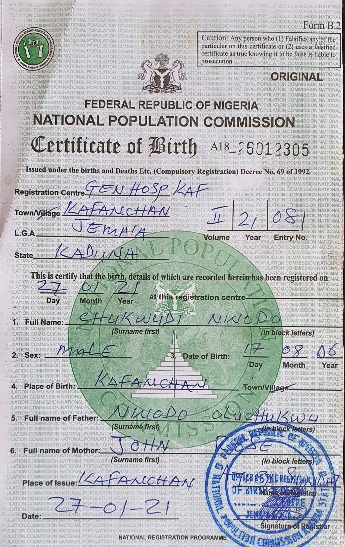 Form B.2
Caution: Any person who (1) Falsifies any of the
particular on this certificate or (2) uses a falsified
certificate as true knowing it to be false is liable to
prosecution
ORIGINAL
FEDERAL REPUBLIC OF NIGERIA
NATIONAL POPULATION COMMISSION
Certificate of Birth A18_25012305
Issued under the births and Deaths Etc. (Compulsory Registration) Decree No. 69 of 1992.
Registration Centre GEN HOSP KAF
Town/Village KAFANCHAN II 21 081
L.G.A JEMA'A Volume Year Entry No.
State KADUNA
This is certify that the birth, details of which are recorded herein has been registered on
27 01 21 at this registration centre
Day Month Year
1. Full Name: CHUKWUDI NWODO
(Surname first) (in block letters)
2. Sex: MALE 3. Date of Birth: 17 08 06
Day Month Year
4. Place of Birth: KAFANCHAN Town/Village
5. Full name of Father: NWODO
(Surname first) (in block letters)
6. Full name of Mother: JOHN
(Surname first) (in block letters)
Place of Issue: KAFANCHAN
Date: 27-01-21
Signature of Registrar
NATIONAL REGISTRATION PROGRAMME